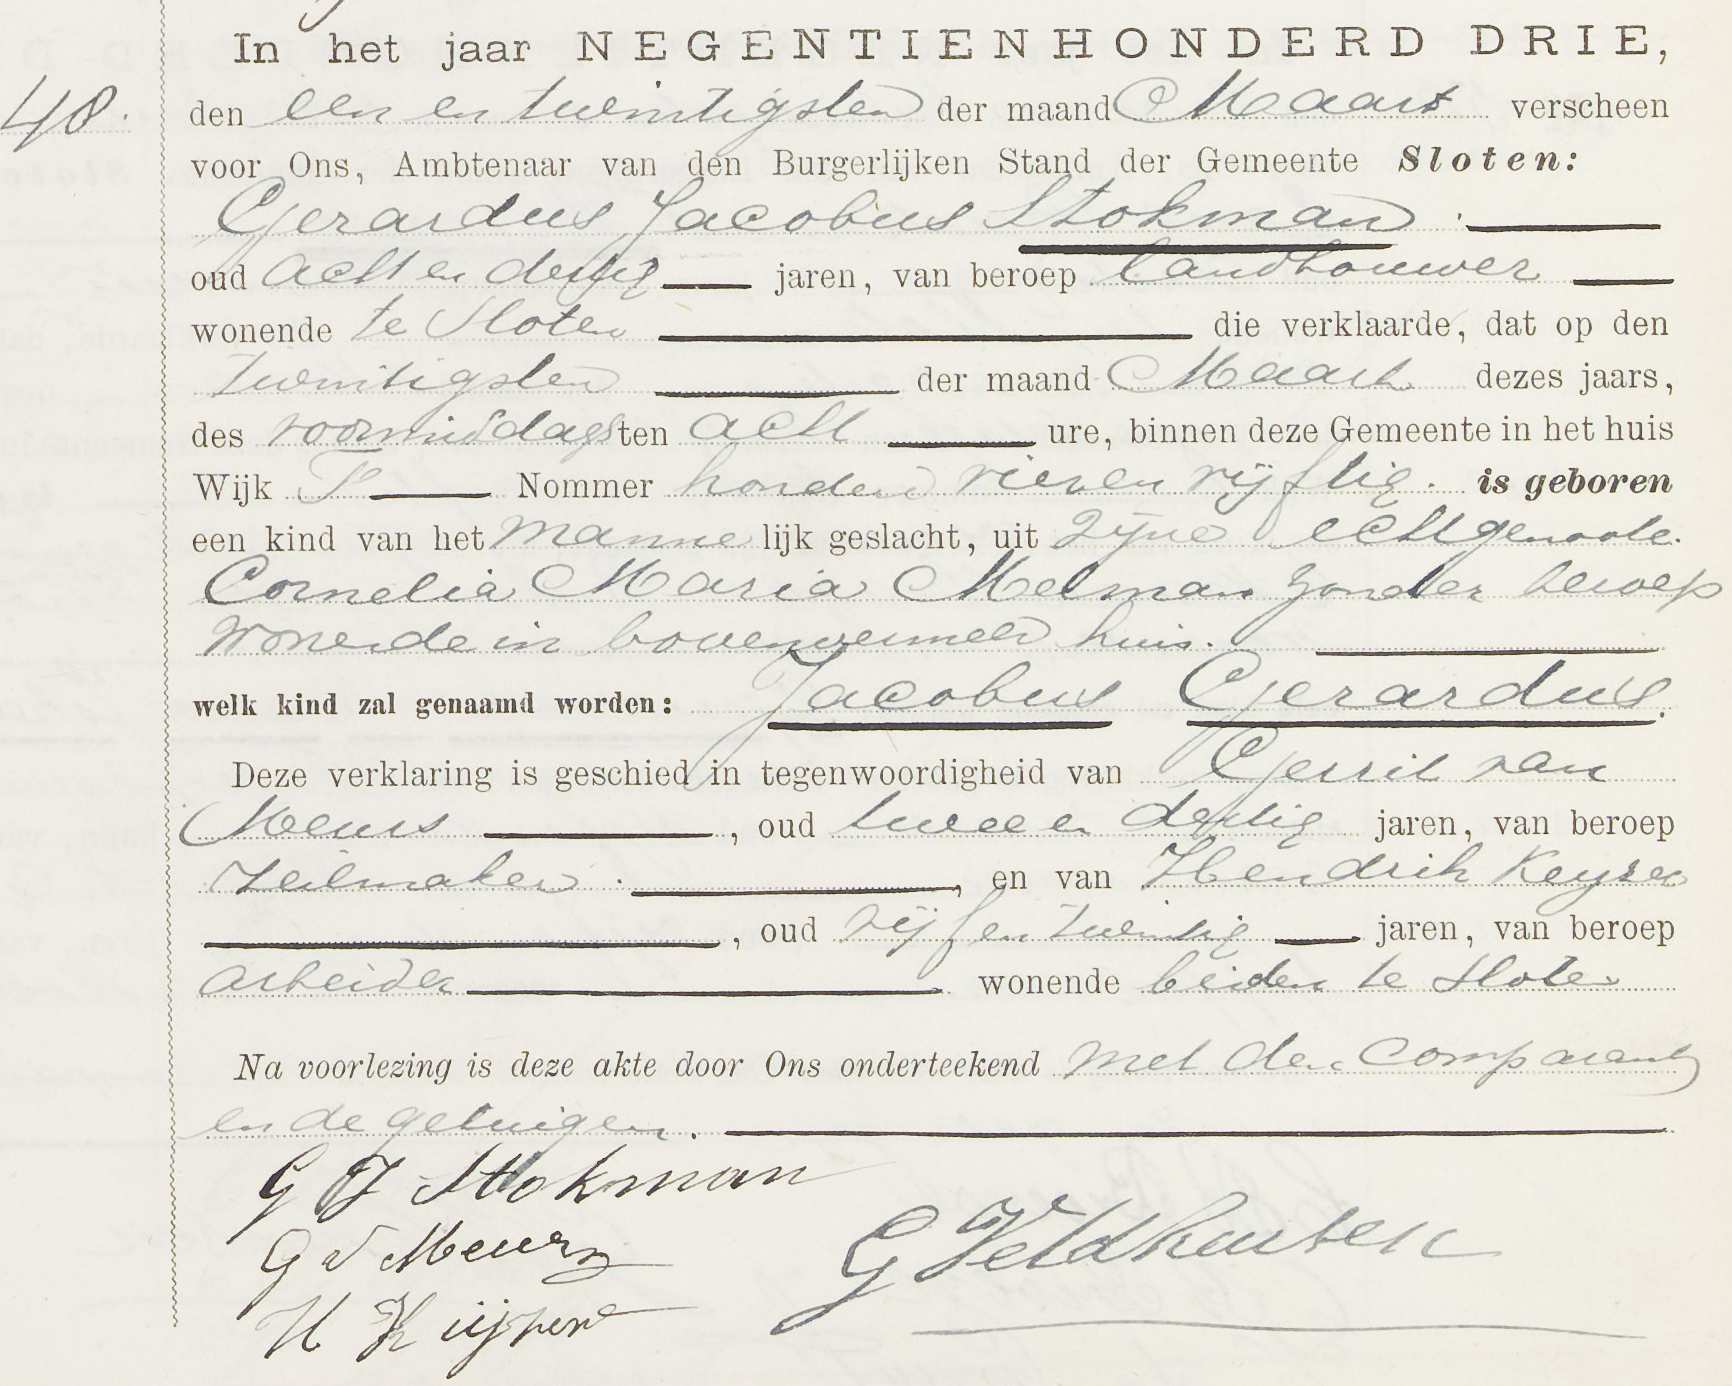 In het jaar NEGENTIENHONDERD DRIE,
48. den een en twintigsten der maand Maart verscheen
voor Ons, Ambtenaar van den Burgerlijken Stand der Gemeente Sloten:
Gerardus Jacobus Stokman
oud acht en dertig jaren, van beroep landbouwer
wonende te Sloten die verklaarde, dat op den
twintigsten der maand Maart dezes jaars,
des voormiddags ten acht ure, binnen deze Gemeente in het huis
Wijk Nommer honderd vier en vijftig. is geboren
een kind van het mannelijk geslacht, uit zijne echtgenoote
Cornelia Maria Melman zonder beroep
wonende in bovenvermeld huis.
welk kind zal genaamd worden: Jacobus Gerardus.
Deze verklaring is geschied in tegenwoordigheid van Gerrit van
Meurs, oud twee en dertig jaren, van beroep
Zeilmaker, en van Hendrik
, oud vijf en twintig jaren, van beroep
arbeider wonende beiden te Sloten
Na voorlezing is deze akte door Ons onderteekend met den comparant
en de getuigen.
G J Stokman
G v Meurs
H
G Veldhuisen